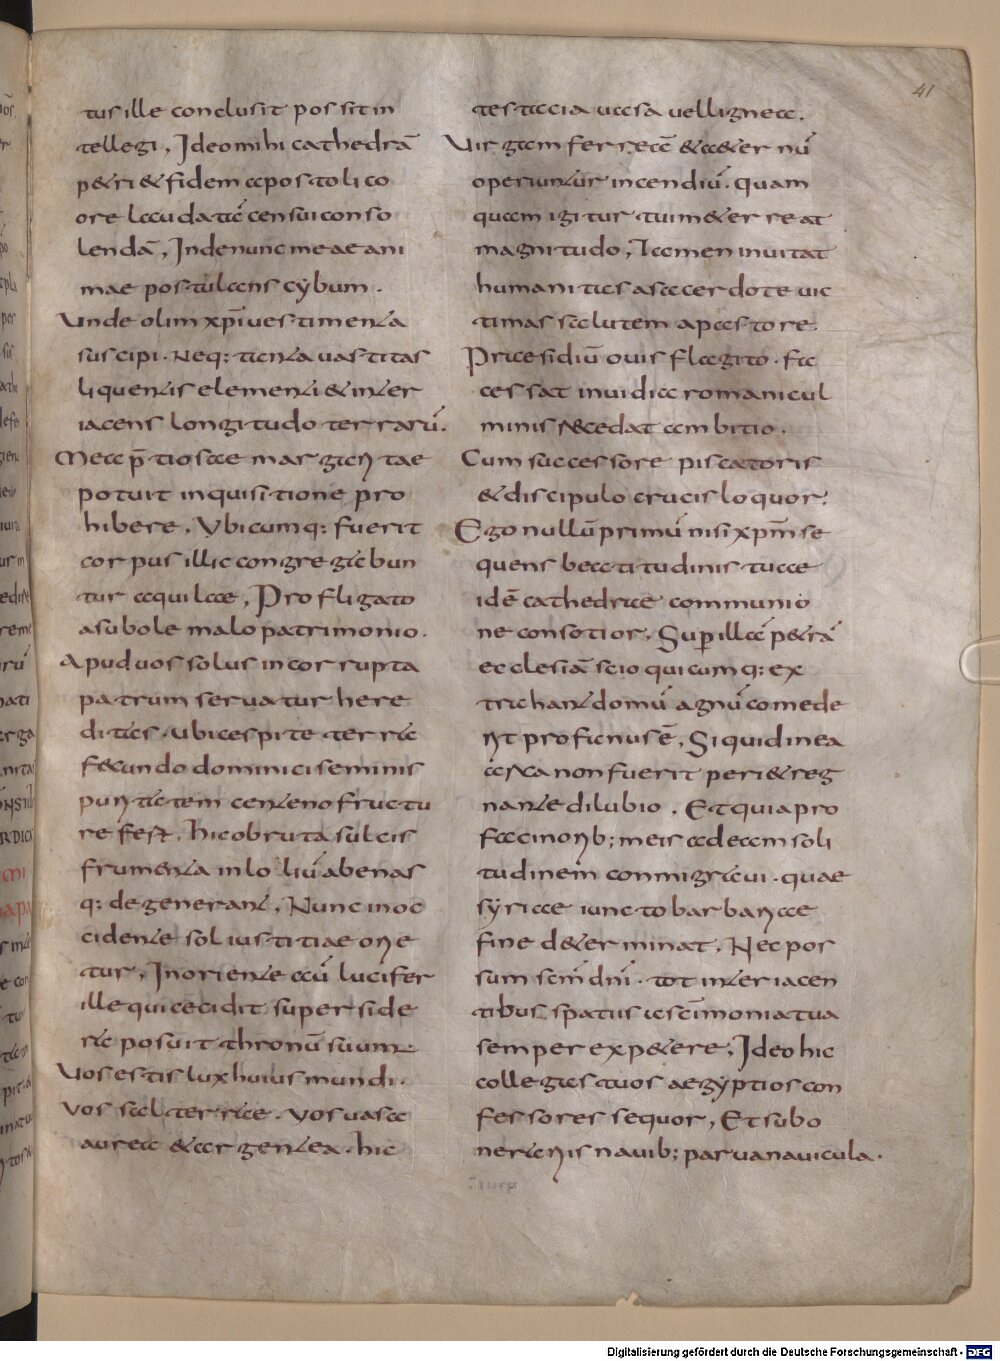 41
tus ille conclusit possit in
tellegi, Ideo mihi cathedrā
petri & fidem apostoli co
ore laudatā censui conso
lendā, Inde nunc meae ani
mae postulans cybum.
Unde olim xp̄i uestimenta
suscipi. Neq: tanta uastitas
liquentis elementi & inter
iacens longitudo terrarū.
Mea p̄tiosae margantae
potuit inquisitione pro
hibere, Vbicumq: fuerit
corpus illic congregabun
tur aquilae, Profligato
a subole malo patrimonio.
Apud uos solus incorrupta
patrum seruatur here
ditas. ubi cespite terra
fecundo dominici seminis
puntatem centeno fructu
refest. hic obruta sulcis
frumenta in loliū abenas
q: degenerant, Nunc in oc
cidente sol iustitiae one
tur, In oriente aū lucifer
ille qui cecidit super side
ra posuit thronū suum.
Uos estis lux huius mundi.
Vos sal terrae. Vos uasa
aurea & argentea. hic
testacia uasa uel lignea.
Uirgam ferreā & aeternū
operiuntur incendiū. quam
quam igitur tui me terreat
magnitudo, Tamen inuitat
humanitas a sacerdote uic
timas salutem a pastore.
Praesidiū ouis flagito. fa
cessat inuidia romani cul
minis recedat ambitio.
Cum successore piscatoris
& discipulo crucis loquor:
Ego nullū primū nisi xp̄m se
quens beatitudinis tuae
idē cathedrae communio
ne consotior, Super illā petrā
ecclesiā scio quicumq: ex
tra hanc domū agnū comede
nt profanus ē, Si quid in ea
arca non fuerit perit reg
nante dilubio. Et quia pro
facinonb; meis ad eam soli
tudinem conmigraui. quae
syriae iuncto barbanae
fine determinat, Nec pos
sum scm̄ dnī. tot interiacen
tibus spatiis sēimonia tua
semper expetere, Ideo hic
collegas tuos aegyptios con
fessores sequor, Et sub o
nerantis nauib; parua nauicula.
Digitalisierung gefördert durch die Deutsche Forschungsgemeinschaft - DFG